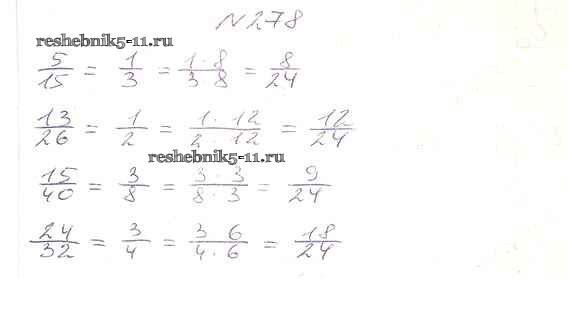 N278
reshebnik5-11.ru
5/15 = 1/3 = 1·8/3 8 = 8/24
13/26 = 1/2 = 1·12/2·12 = 12/24
reshebnik5-11.ru
15/40 = 3/8 = 3·3/8·3 = 9/24
24/32 = 3/4 = 3 6/4·6 = 18/24